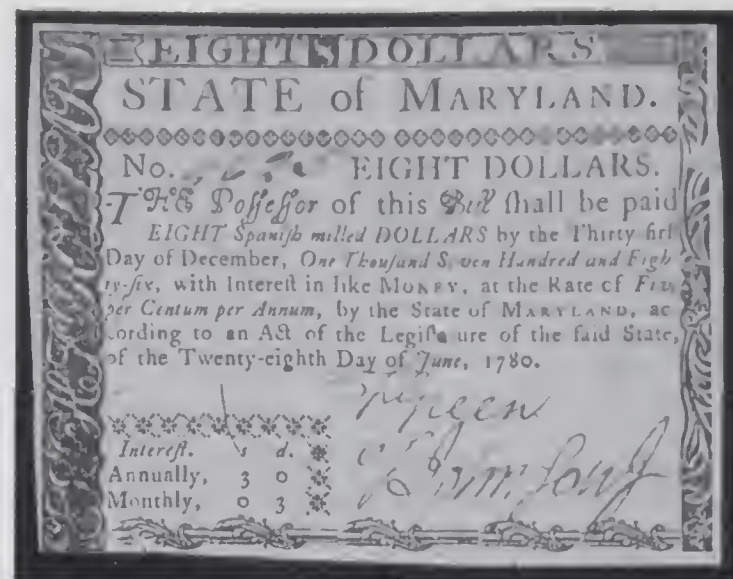 EIGHT DOLLARS
STATE of MARYLAND.
No. EIGHT DOLLARS.
THE Poſſeſſor of this Bill ſhall be paid
EIGHT Spaniſh milled DOLLARS by the Thirty firſt
Day of December, One Thouſand Seven Hundred and Eigh
ty-ſix, with Intereſt in like MONEY, at the Rate of Five
per Centum per Annum, by the State of MARYLAND, ac
cording to an Act of the Legiſlature of the ſaid State,
of the Twenty-eighth Day of June, 1780.
Green
Intereſt. s d.
Annually, 3 0
Monthly, 0 3